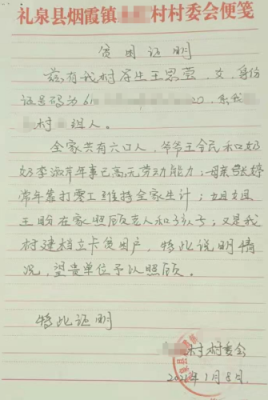 礼泉县烟霞镇 村村委会便笺
贫困证明
兹有我村学生王思莹，女，身份
证号码为61 20，系我
村 组人。
全家共有六口人，爷爷王全民和奶
奶李淑芹年事已高无劳动能力；母亲 婷
常年靠打零工维持全家生计；姐姐
王盼在家照顾老人和孩子；又是我
村建档立卡贫困户，特此说明情
况，望贵单位予以照顾。
特此证明
村村委会
202 年1月8日